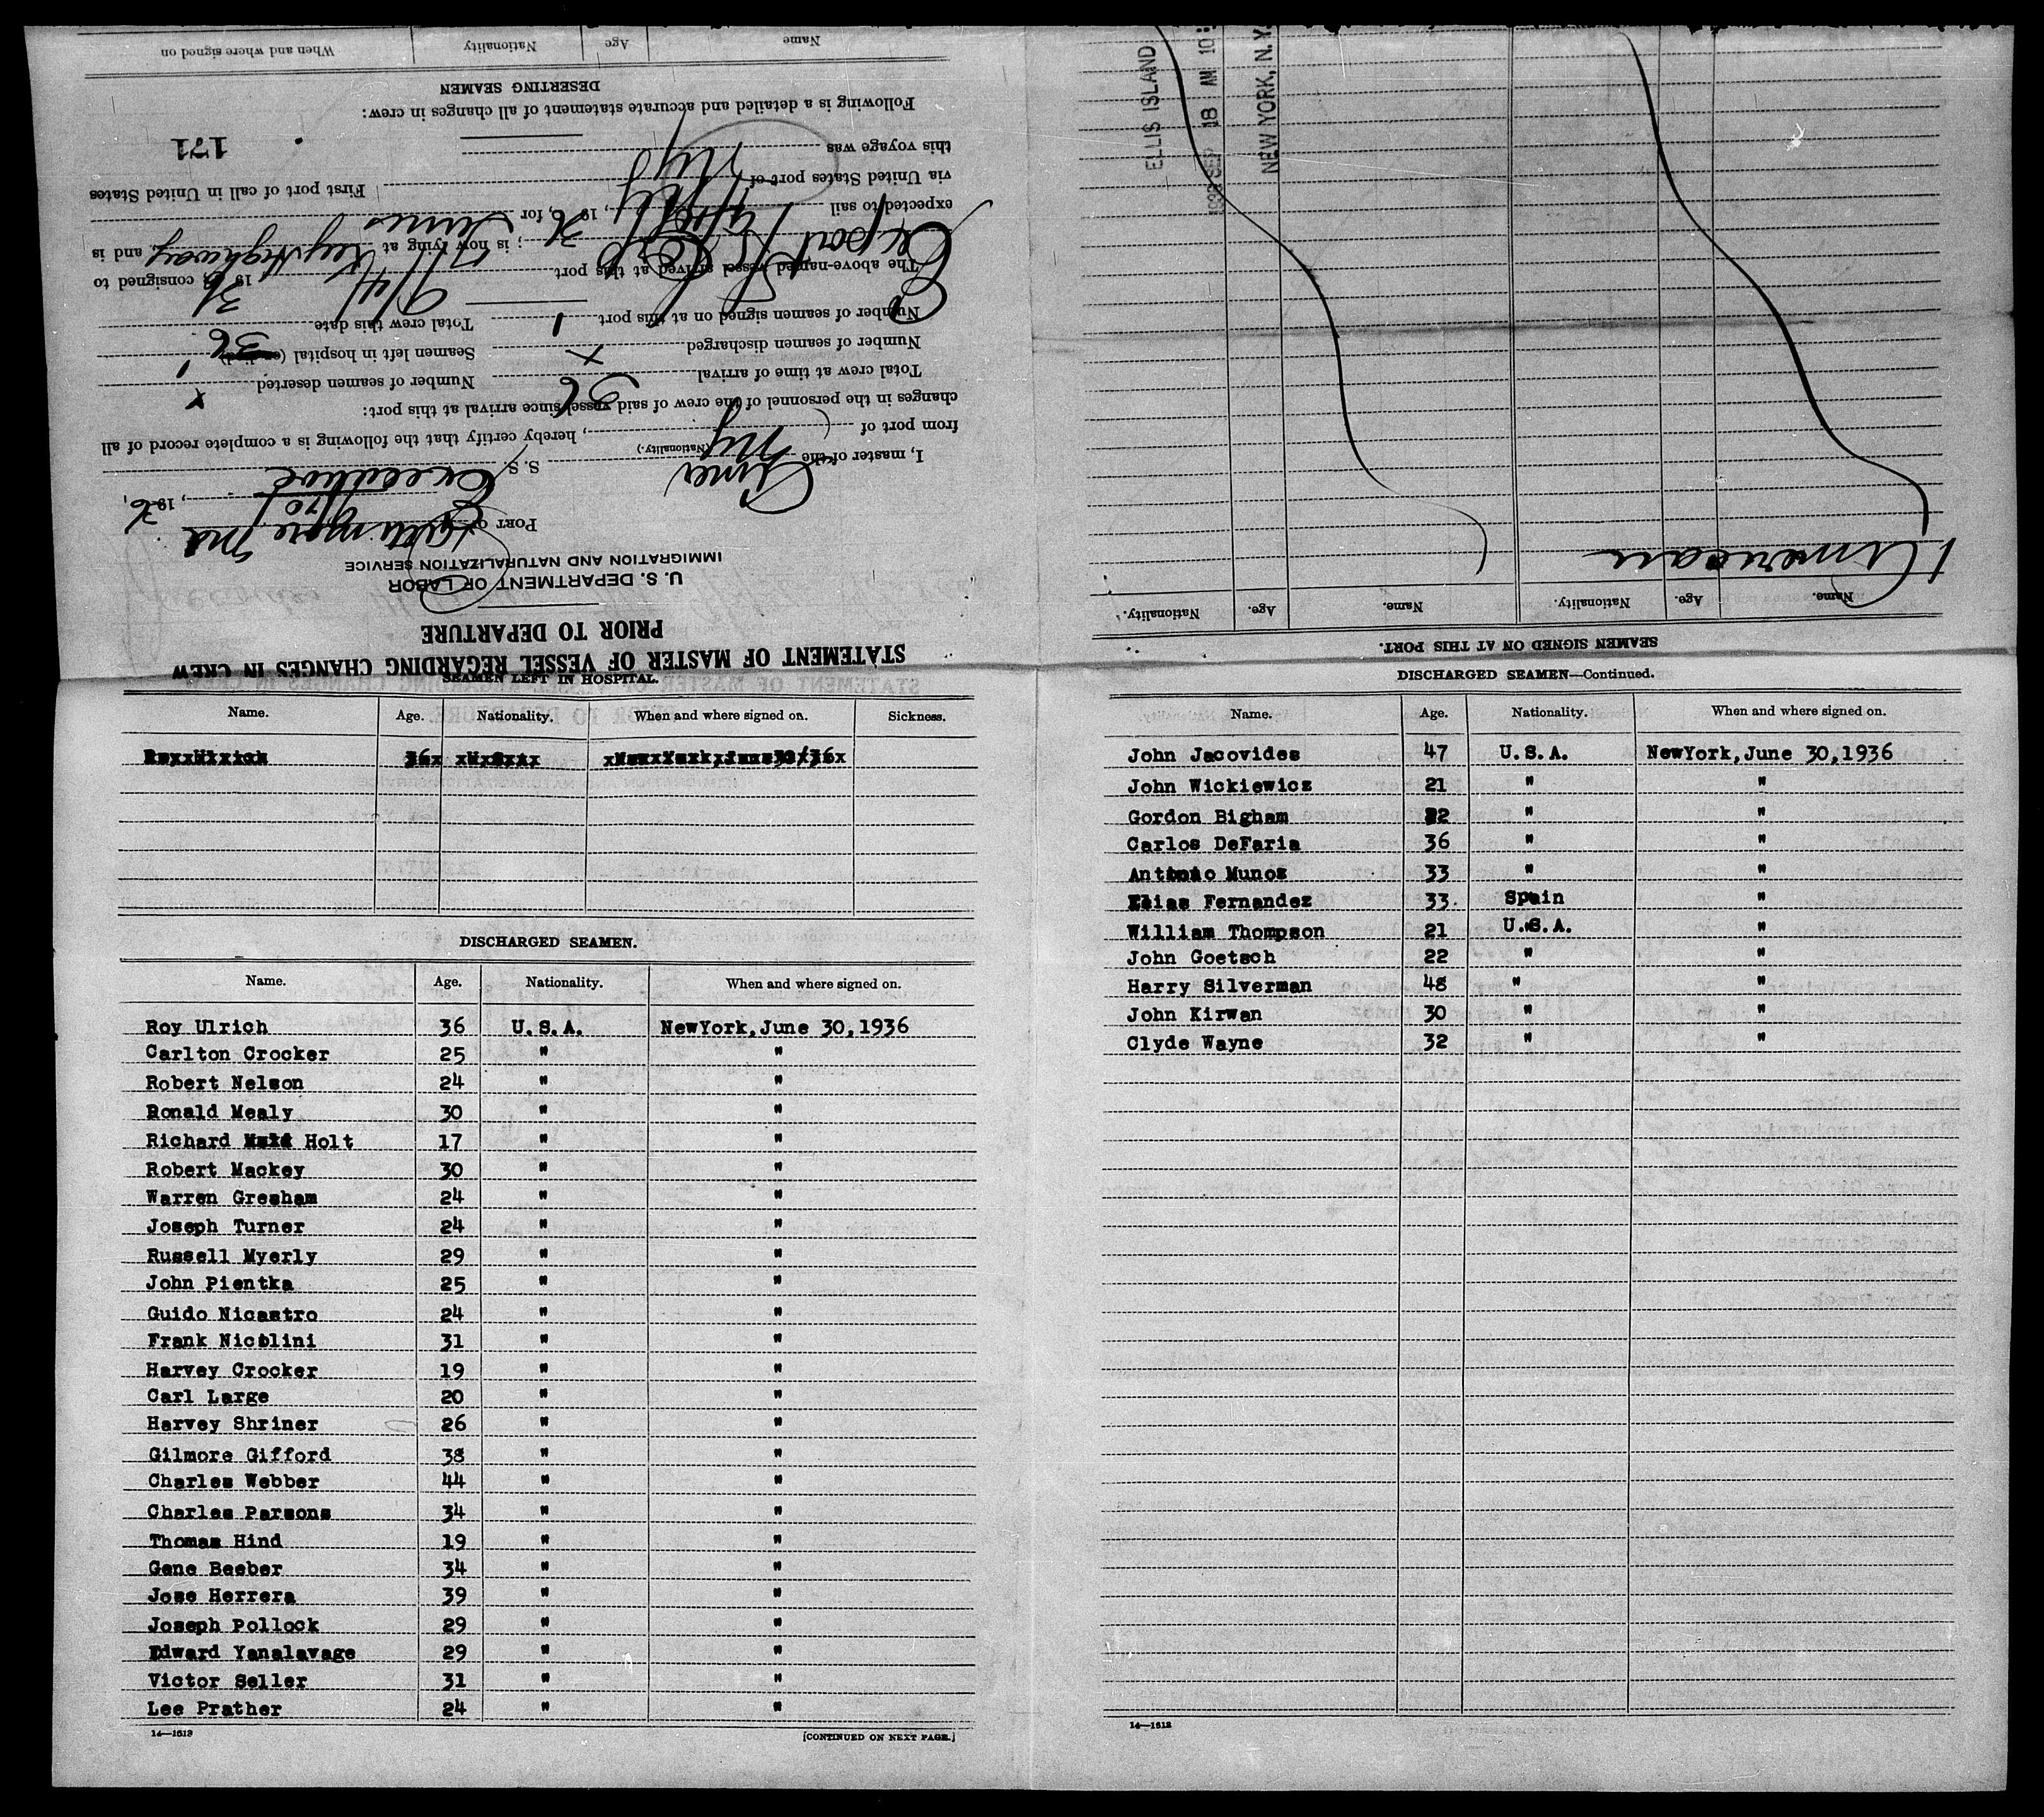 STATEMENT OF MASTER OF VESSEL REGARDING CHANGES IN CREW
PRIOR TO DEPARTURE
U. S. DEPARTMENT OF LABOR
IMMIGRATION AND NATURALIZATION SERVICE
PORT OF Baltimore Md
9/10, 1936,
I, master of the Amer S. S. Executive
(Nationality.)
from port of NY, hereby certify that the following is a complete record of all
changes in the personnel of the crew of said vessel since arrival at this port:
Total crew at time of arrival 36 Number of seamen deserted x
Number of seamen discharged x Seamen left in hospital 1
Number of seamen signed on at this port 1 Total crew this date 36
The above-named vessel arrived at this port 9/4 1936, consigned to
Export; is now lying at Key Highway, and is
expected to sail, 1936, for Tunis
via United States port of NY First port of call in United States
this voyage was
171
Following is a detailed and accurate statement of all changes in crew:
DESERTING SEAMEN
Name Age Nationality When and where signed on
SEAMEN SIGNED ON AT THIS PORT.
Name. Age. Nationality. Name. Age. Nationality.
1 American
ELLIS ISLAND
SEP 18 AM 10
NEW YORK, N. Y.
SEAMEN LEFT IN HOSPITAL.
Name. Age. Nationality. When and where signed on. Sickness.
DISCHARGED SEAMEN.
Name. Age. Nationality. When and where signed on.
Roy Ulrich 36 U.S.A. NewYork,June 30,1936
Carlton Crocker 25 " "
Robert Nelson 24 " "
Ronald Mealy 30 " "
Richard Holt 17 " "
Robert Mackey 30 " "
Warren Gresham 24 " "
Joseph Turner 24 " "
Russell Myerly 29 " "
John Pientka 25 " "
Guido Nicastro 24 " "
Frank Nicolini 31 " "
Harvey Crocker 19 " "
Carl Large 20 " "
Harvey Shriner 26 " "
Gilmore Gifford 38 " "
Charles Webber 44 " "
Charles Parsons 34 " "
Thomas Hind 19 " "
Gene Beeber 34 " "
Jose Herrera 39 " "
Joseph Pollock 29 " "
Edward Yanalavage 29 " "
Victor Seller 31 " "
Lee Prather 24 " "
14—1613
[CONTINUED ON NEXT PAGE.]
DISCHARGED SEAMEN—Continued.
Name. Age. Nationality. When and where signed on.
John Jacovides 47 U.S.A. NewYork,June 30,1936
John Wickiewicz 21 " "
Gordon Bigham 22 " "
Carlos DeFaria 36 " "
Antonio Munoz 33 " "
Elias Fernandez 33 Spain "
William Thompson 21 U.S.A. "
John Goetsch 22 " "
Harry Silverman 48 " "
John Kirwan 30 " "
Clyde Wayne 32 " "
14—1613